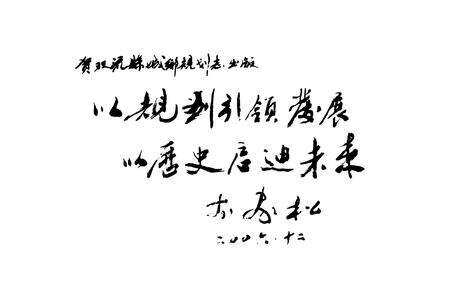 贺双流縣城鄉規划志出版
以規劃引領發展
以歷史启迪未来
松
二〇〇六.十二